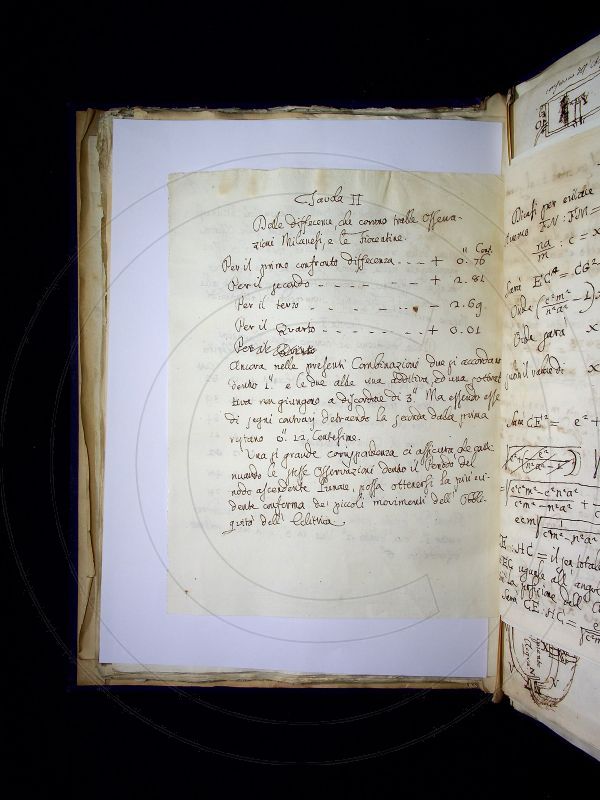 Tavola II
Dalle differenze, che corrono tralle Osserva-
zioni Milanesi, e le Fiorentine.
" Cent.
Per il primo confronto differenza . . . + 0. 76
Per il secondo - - - - - - + 2. 81
Per il terzo - - - - - - 2. 69
Per il Quarto - - - - - - + 0. 01
Per il Quinto
Ancora nelle presenti Combinazioni due si accordano
dentro 1". e le due alle una additiva, ed una sottrat
tiva non giungono a discordare di 3". Ma essendo esse
di segni contrarj detraendo la seconda dalla prima
restano 0". 12. Centesime.
Una sì grande corrispondenza ci assicura che conti-
nuando le stesse Osservazioni dentro il Periodo del
nodo ascendente Lunare, possa ottenersi la più evi-
dente conferma dei piccoli movimenti dell' Obbli-
quità dell' Eclittica
Dicasi per evitare
FN : FM =
na/m : c = x
Sarà EG² = CG²
Onde (c²m²/n²a² - 1)
Onde sarà x
quindi il valore di x
Sarà CE² = e² +
c²m² - e²n²a²
c²m² - n²a²
ecm
c²m² - n²a²
CE : HC = il sen total
EG uguale all' angol
Sarà CE . HC =